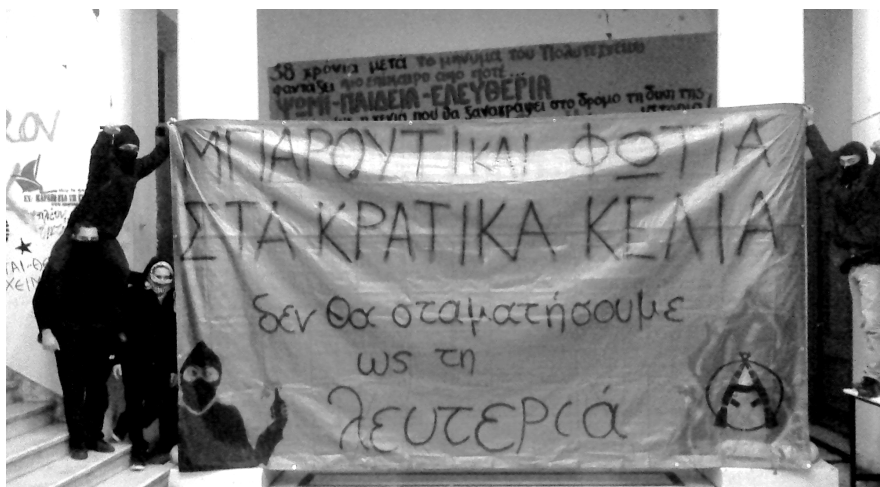 38 χρόνια μετά το μήνυμα του Πολυτεχνείου
φαντάζει πιο επίκαιρο από ποτέ...
ΨΩΜΙ-ΠΑΙΔΕΙΑ-ΕΛΕΥΘΕΡΙΑ
που θα ξαναγράψει στο δρόμο τη δική της
ΜΠΑΡΟΥΤΙ ΚΑΙ ΦΩΤΙΑ
ΣΤΑ ΚΡΑΤΙΚΑ ΚΕΛΙΑ
δεν θα σταματήσουμε
ως τη
λευτεριά